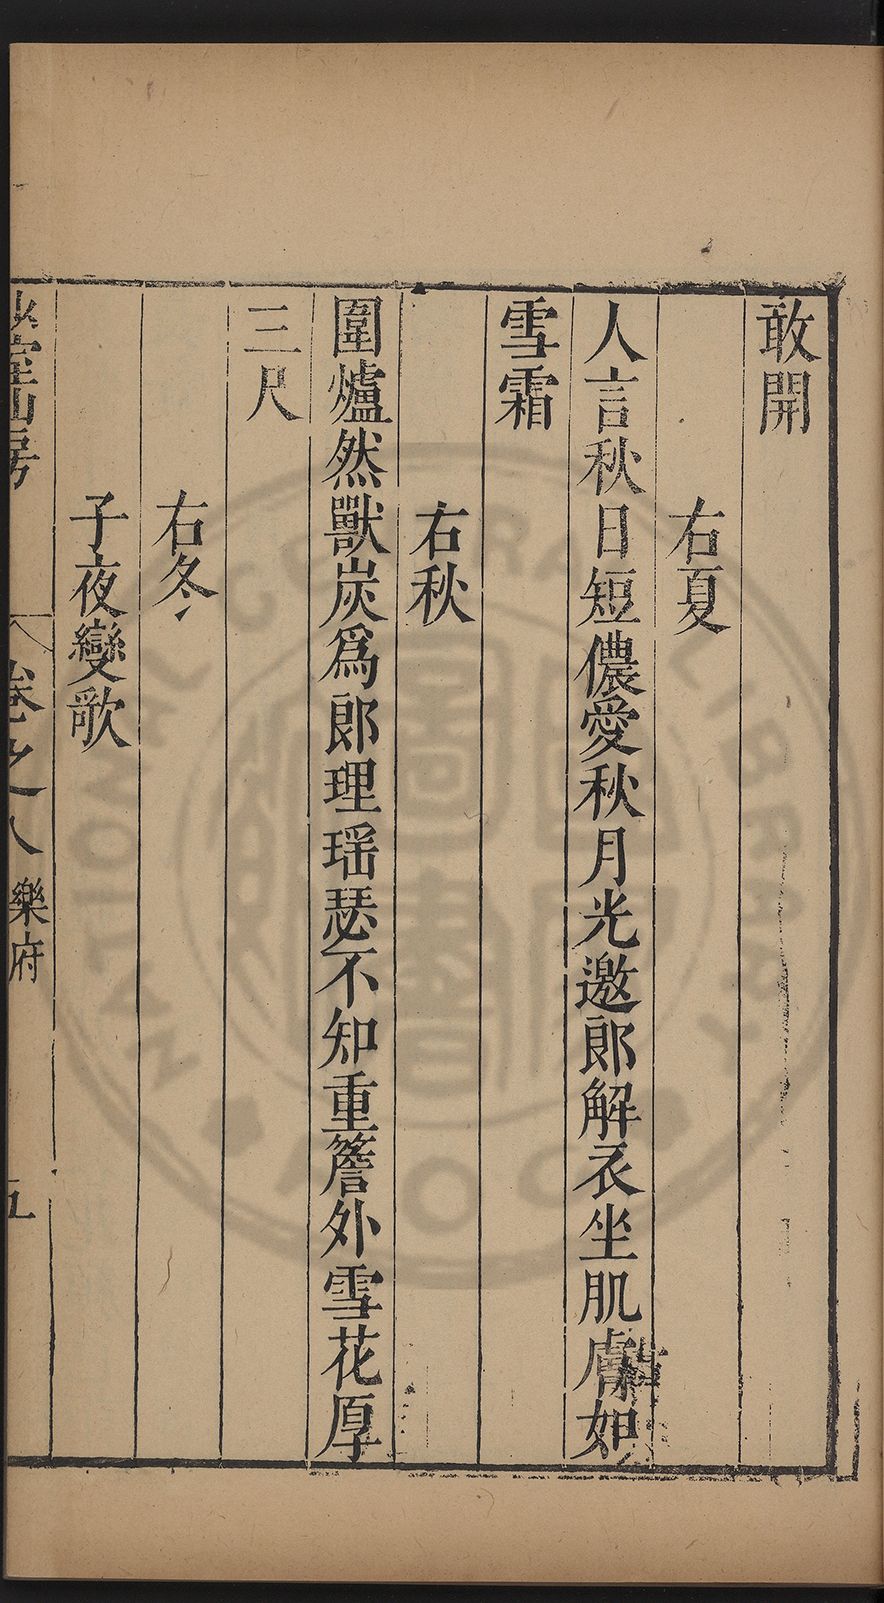 敢開
右夏
人言秋日短儂愛秋月光邀郎解衣坐肌膚如
雪霜
右秋
圍爐然獸炭爲郎理瑶瑟不知重簷外雪花厚
三尺
右冬
子夜變歌
山房
卷之八 樂府 五